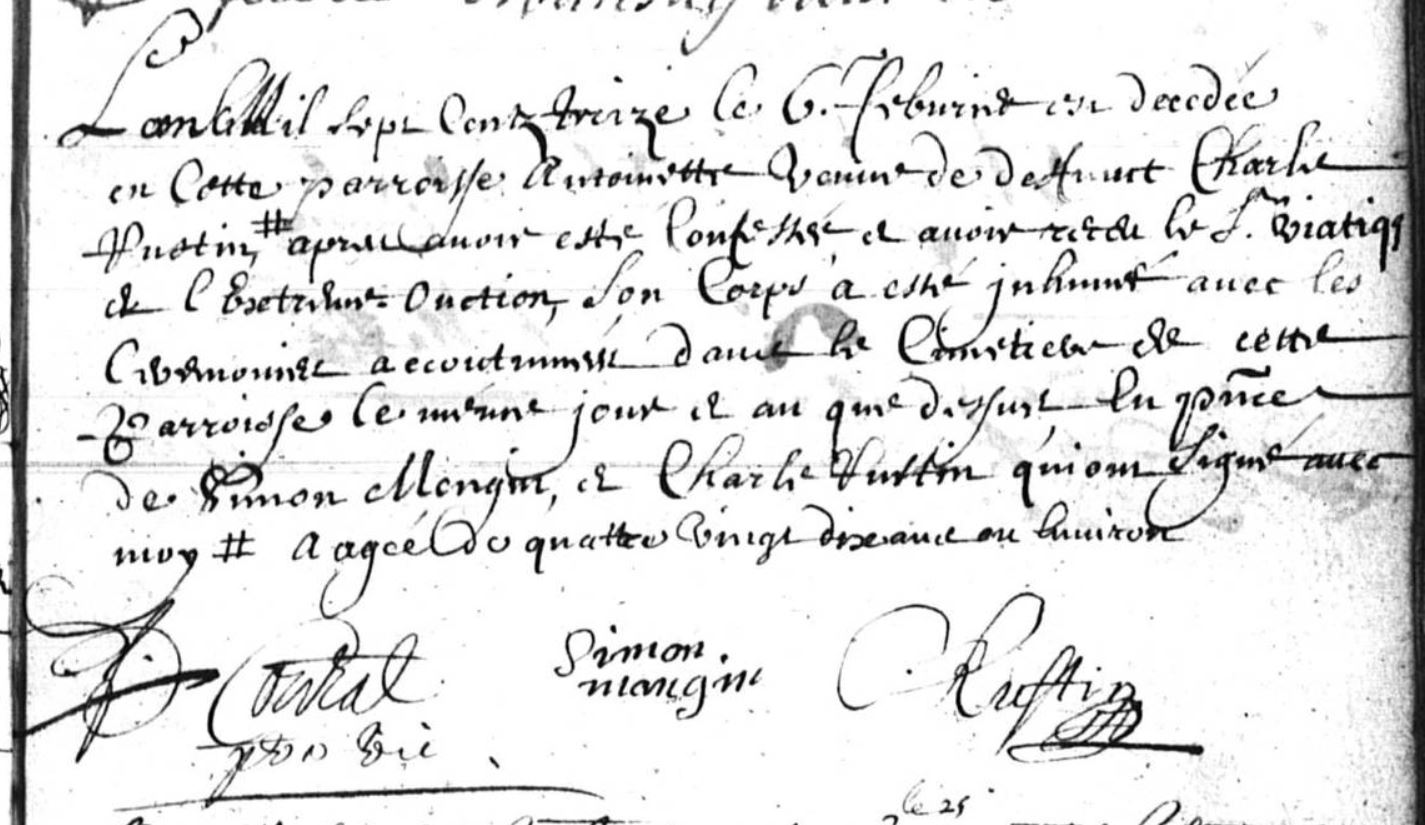 L'an Mil sept Centz treize le 6. feburier est decedée
en Cette parroisse Antoinette Veuue de deffunct Charle
Rustin, # apres auoir esté Confessée et auoir receu le St. Viatiq;
et l'Extreme-Onction, son Corps a esté inhumé auec les
Ceremonies accoutumees dans le Cimetiere de cette
Parroisse le meme jour et an que dessus, En pnce
de Simon Mengin, et Charle Rustin qui ont signé auec
moy # Aagée de quattre vingt dix ans ou Enuiron
Simon
mangin
C Rustin
le 25